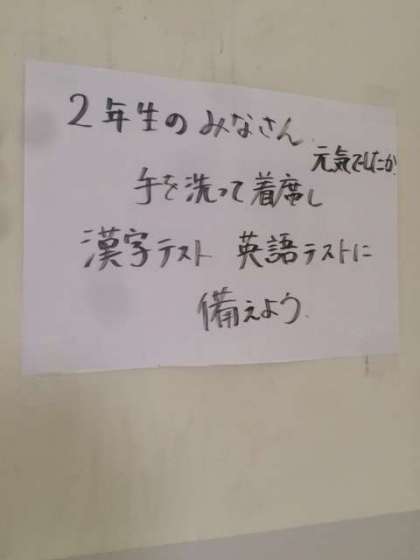 2年生のみなさん.
元気でしたか?
手を洗って着席し
漢字テスト 英語テストに
備えよう.